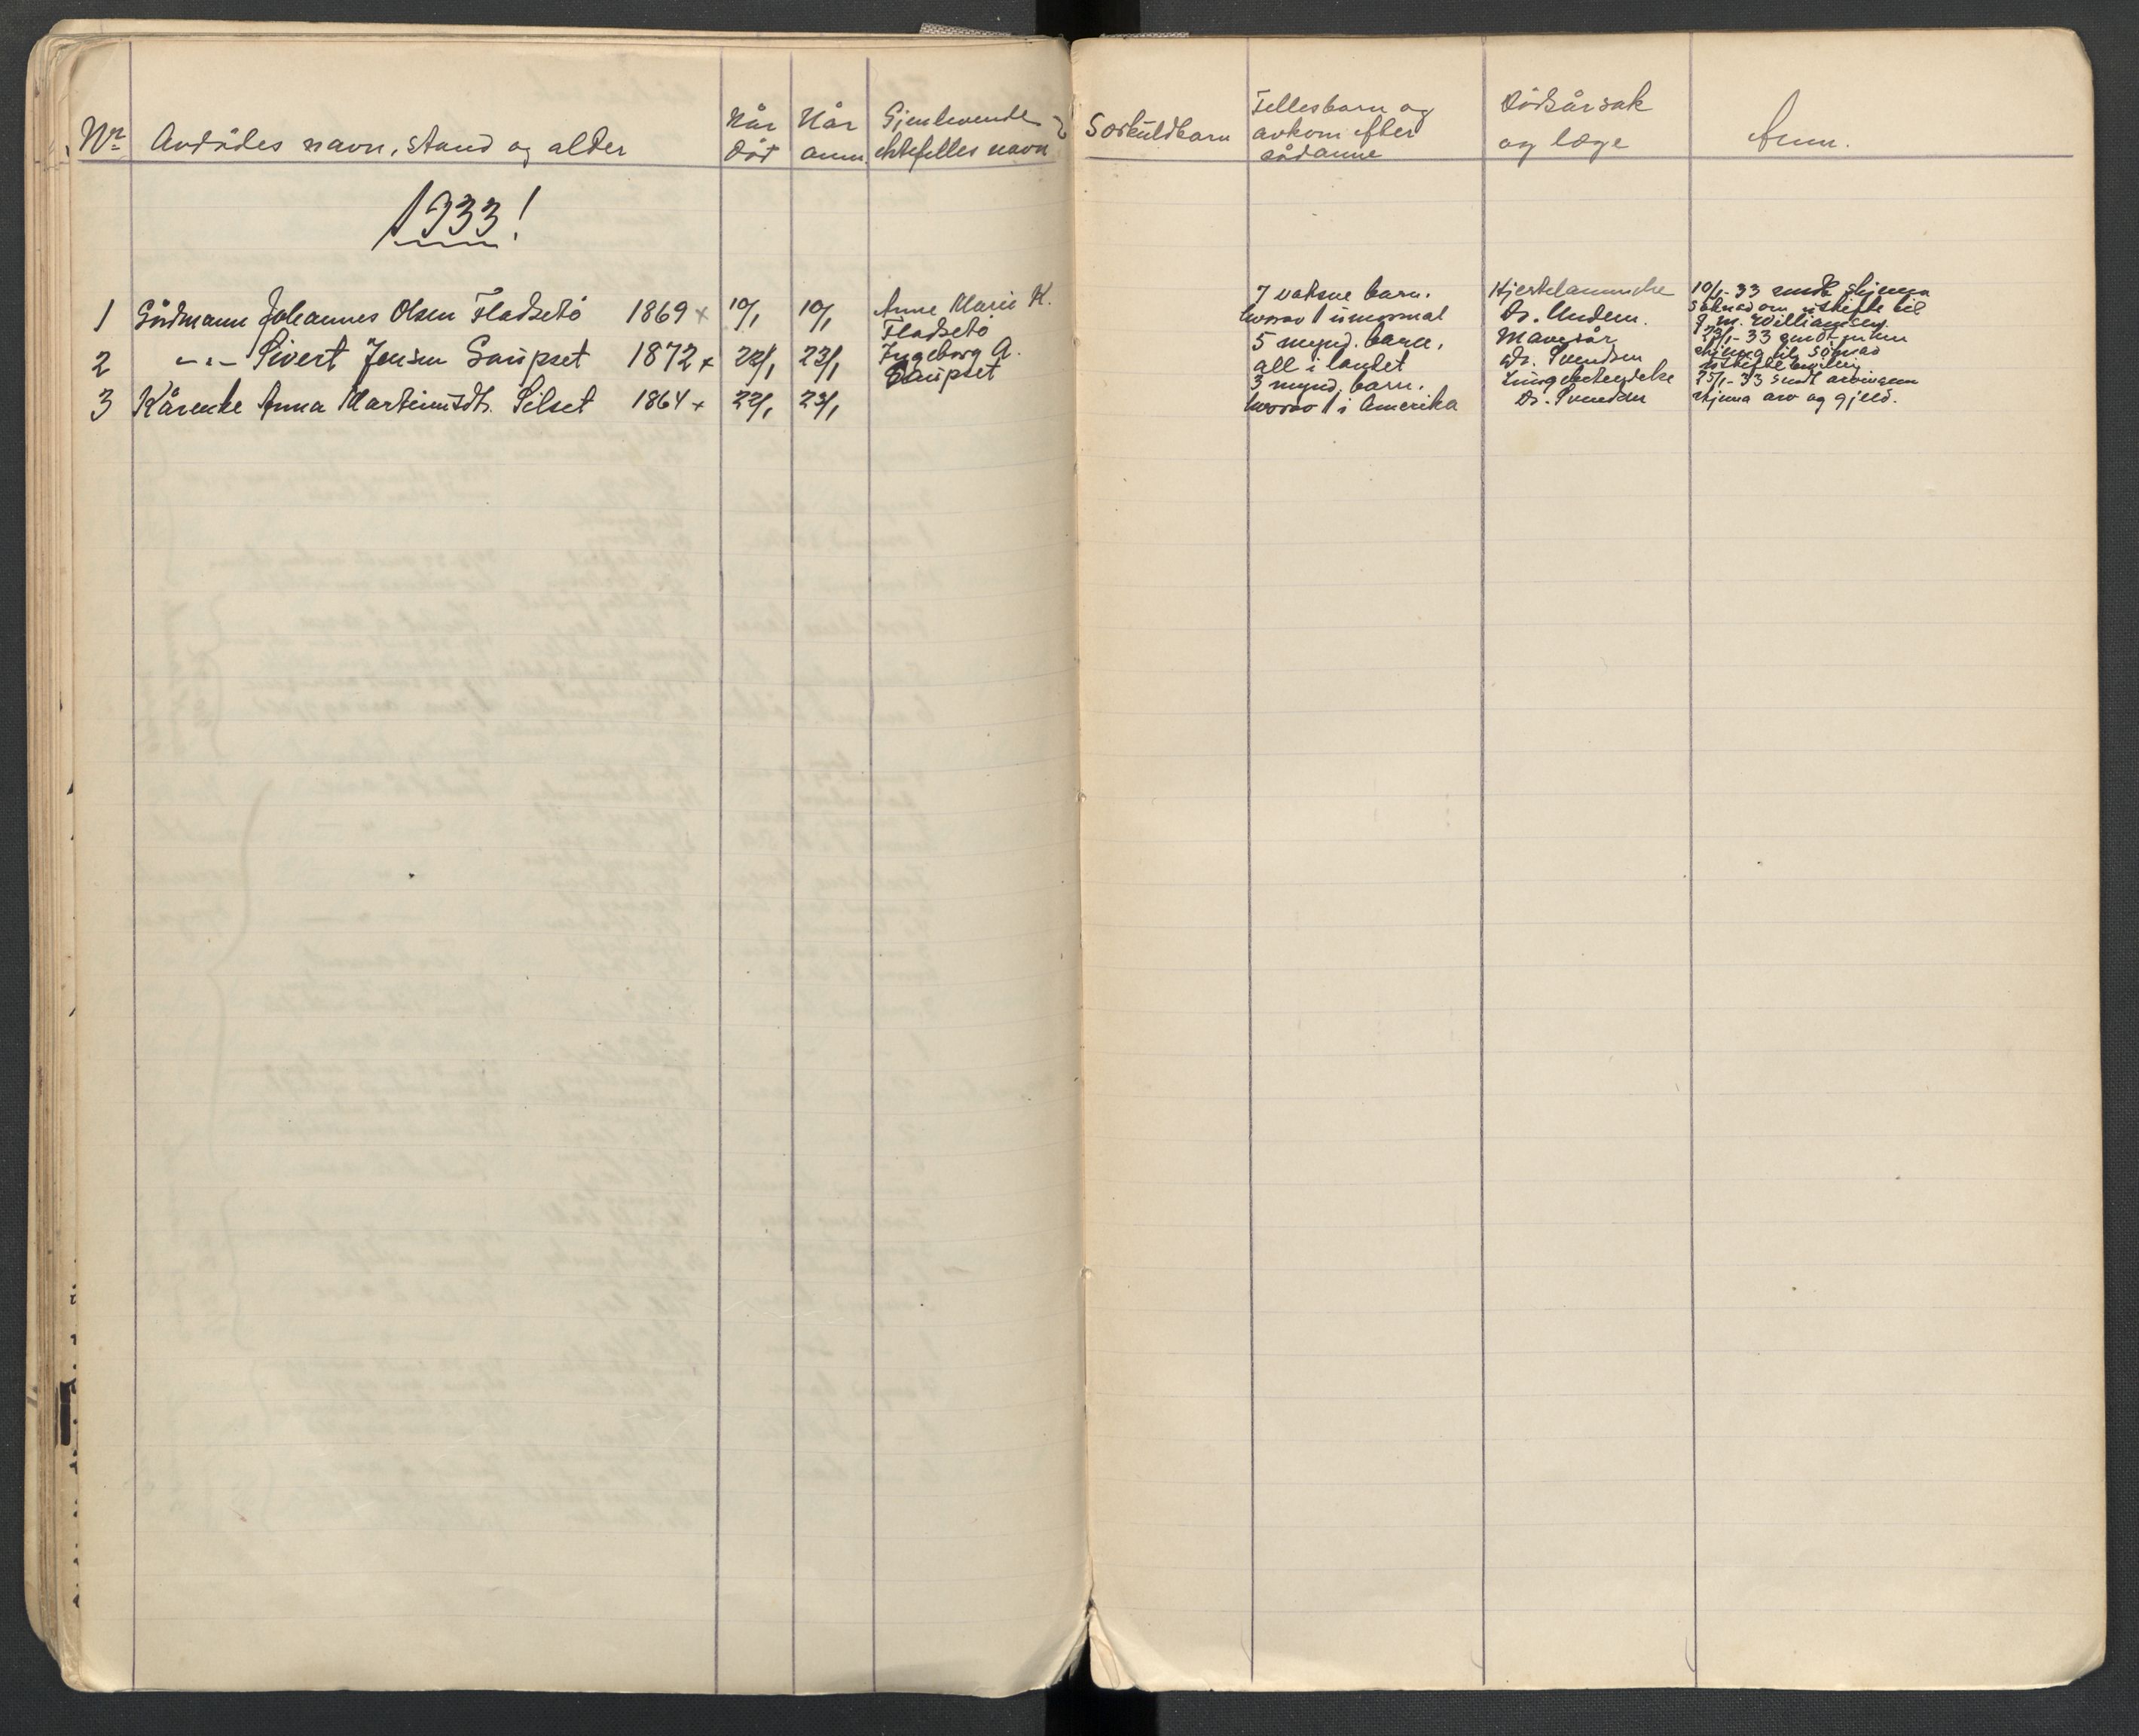 Nr. Avdødes navn, stand og alder
Når død
Når anm
Gjenlevende ektefelles navn
Særkuldbarn
Fellesbarn og
avkom efter
sådanne
Dødsårsak
og læge
Anm.
1933!
1 Gårdmann Johannes Olsen Fladsetø 1869 x 10/1 10/1 Anne Marie K.
Fladsetø
7 vaksne barn.
hvorav 1 unormal
Hjertelammelse
Dr. Undem.
10/1-33 sendt skjema
søknad om uskifte til
J. M. Williamsen.
2 -"- Sivert Jensen Gaupset 1872 x 22/1 23/1 Ingeborg A.
Gaupset
5 mynd. barn.
all i landet
Mavesår
Dr. Svendsen
23/1-33 sendt enken
skjema til søknad
3 Kårenke Anna Martinusdtr. Silset 1864 x 22/1 23/1
3 mynd. barn.
hvorav 1 i Amerika
Lungebetendelse
Dr. Svendsen
25/1-33 sendt arvingene
skjema arv og gjeld.